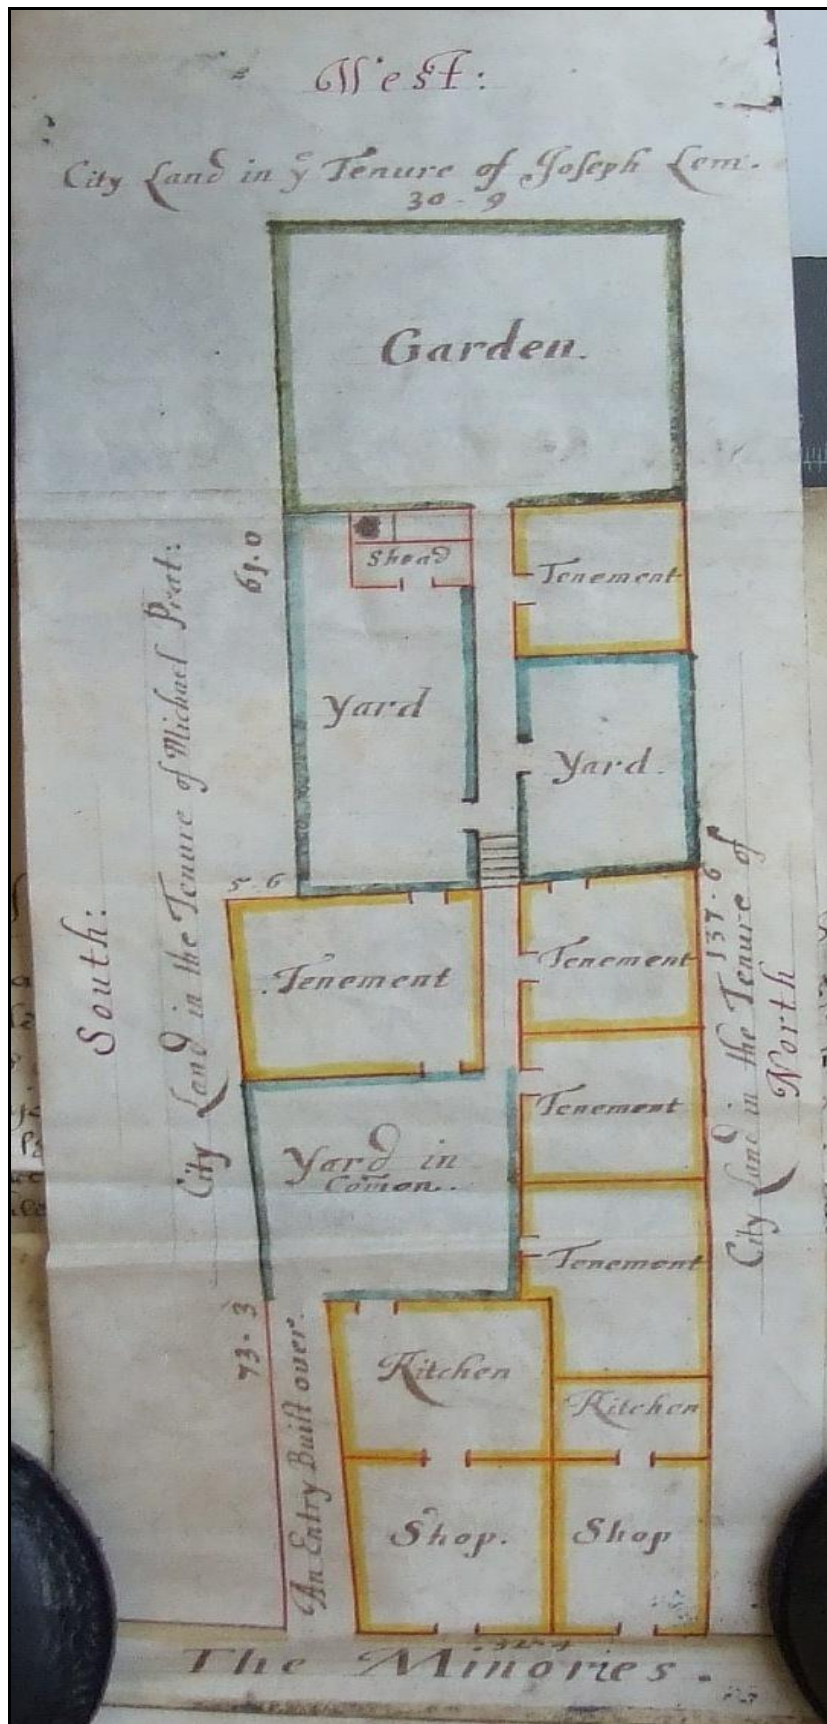 West:
City Land in yᵉ Tenure of Joseph Lem.
30 - 9
Garden.
61.0
Shead
Tenement
City Land in the Tenure of Michael Prat:
Yard
Yard.
5.6
South:
Tenement
Tenement
137.6
City Land in the Tenure of
North
Tenement
Yard in
Comon.
Tenement
73.3
An Entry Built over.
Kitchen
Kitchen
Shop.
Shop
The Minories.